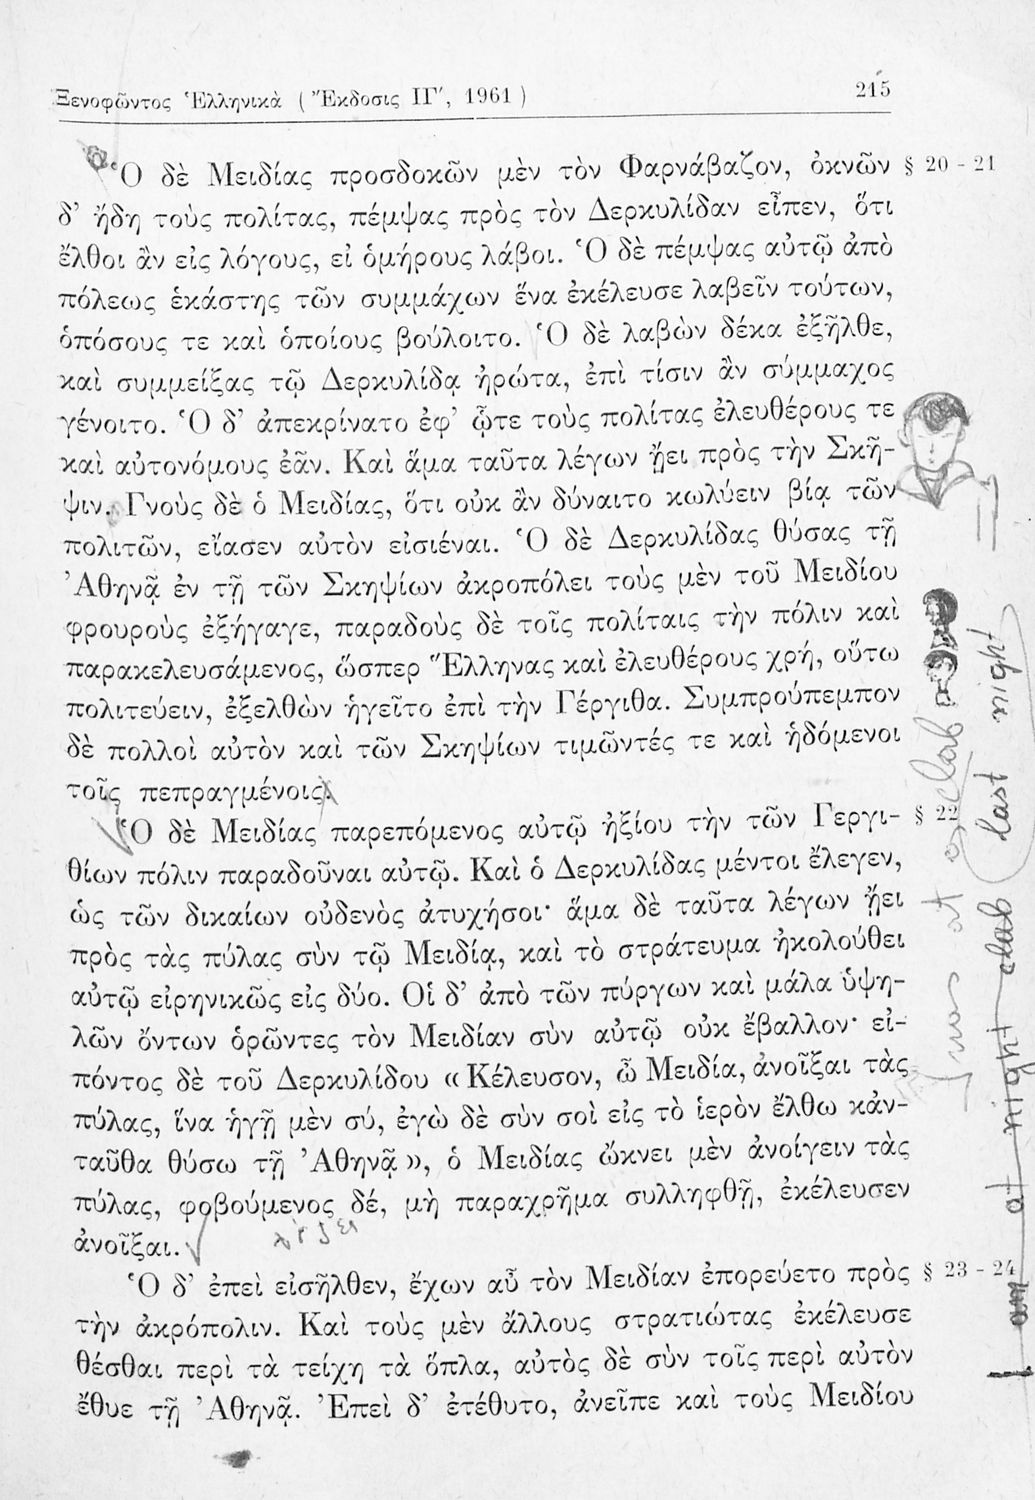 Ξενοφῶντος Ἑλληνικὰ ( Ἔκδοσις ΙΓ′, 1961 )
215
Ὁ δὲ Μειδίας προσδοκῶν μὲν τὸν Φαρνάβαζον, ὀκνῶν § 20 - 21
δ’ ἤδη τοὺς πολίτας, πέμψας πρὸς τὸν Δερκυλίδαν εἶπεν, ὅτι
ἔλθοι ἂν εἰς λόγους, εἰ ὁμήρους λάβοι. Ὁ δὲ πέμψας αὐτῷ ἀπὸ
πόλεως ἑκάστης τῶν συμμάχων ἕνα ἐκέλευσε λαβεῖν τούτων,
ὁπόσους τε καὶ ὁποίους βούλοιτο. Ὁ δὲ λαβὼν δέκα ἐξῆλθε,
καὶ συμμείξας τῷ Δερκυλίδᾳ ἠρώτα, ἐπὶ τίσιν ἂν σύμμαχος
γένοιτο. Ὁ δ’ ἀπεκρίνατο ἐφ’ ᾧτε τοὺς πολίτας ἐλευθέρους τε
καὶ αὐτονόμους ἐᾶν. Καὶ ἅμα ταῦτα λέγων ᾔει πρὸς τὴν Σκῆ-
ψιν. Γνοὺς δὲ ὁ Μειδίας, ὅτι οὐκ ἂν δύναιτο κωλύειν βίᾳ τῶν
πολιτῶν, εἴασεν αὐτὸν εἰσιέναι. Ὁ δὲ Δερκυλίδας θύσας τῇ
Ἀθηνᾷ ἐν τῇ τῶν Σκηψίων ἀκροπόλει τοὺς μὲν τοῦ Μειδίου
φρουροὺς ἐξήγαγε, παραδοὺς δὲ τοῖς πολίταις τὴν πόλιν καὶ
παρακελευσάμενος, ὥσπερ Ἕλληνας καὶ ἐλευθέρους χρή, οὕτω
πολιτεύειν, ἐξελθὼν ἡγεῖτο ἐπὶ τὴν Γέργιθα. Συμπρούπεμπον
δὲ πολλοὶ αὐτὸν καὶ τῶν Σκηψίων τιμῶντές τε καὶ ἡδόμενοι
τοῖς πεπραγμένοις.
Ὁ δὲ Μειδίας παρεπόμενος αὐτῷ ἠξίου τὴν τῶν Γεργι- § 22
θίων πόλιν παραδοῦναι αὐτῷ. Καὶ ὁ Δερκυλίδας μέντοι ἔλεγεν,
ὡς τῶν δικαίων οὐδενὸς ἀτυχήσοι· ἅμα δὲ ταῦτα λέγων ᾔει
πρὸς τὰς πύλας σὺν τῷ Μειδίᾳ, καὶ τὸ στράτευμα ἠκολούθει
αὐτῷ εἰρηνικῶς εἰς δύο. Οἱ δ’ ἀπὸ τῶν πύργων καὶ μάλα ὑψη-
λῶν ὄντων ὁρῶντες τὸν Μειδίαν σὺν αὐτῷ οὐκ ἔβαλλον· εἰ-
πόντος δὲ τοῦ Δερκυλίδου « Κέλευσον, ὦ Μειδία, ἀνοῖξαι τὰς
πύλας, ἵνα ἡγῇ μὲν σύ, ἐγὼ δὲ σὺν σοὶ εἰς τὸ ἱερὸν ἔλθω κἀν-
ταῦθα θύσω τῇ Ἀθηνᾷ », ὁ Μειδίας ὤκνει μὲν ἀνοίγειν τὰς
πύλας, φοβούμενος δέ, μὴ παραχρῆμα συλληφθῇ, ἐκέλευσεν
ἀνοῖξαι.
Ὁ δ’ ἐπεὶ εἰσῆλθεν, ἔχων αὖ τὸν Μειδίαν ἐπορεύετο πρὸς § 23 - 24
τὴν ἀκρόπολιν. Καὶ τοὺς μὲν ἄλλους στρατιώτας ἐκέλευσε
θέσθαι περὶ τὰ τείχη τὰ ὅπλα, αὐτὸς δὲ σὺν τοῖς περὶ αὐτὸν
ἔθυε τῇ Ἀθηνᾷ. Ἐπεὶ δ’ ἐτέθυτο, ἀνεῖπε καὶ τοὺς Μειδίου
I was at a clab
last night
I am at night clab